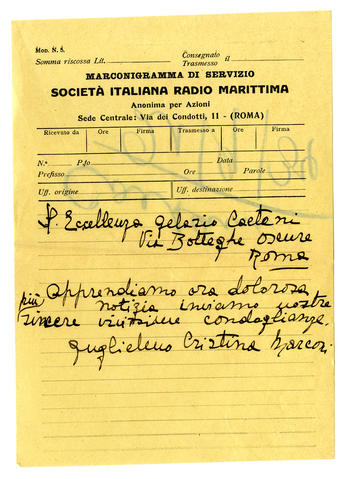 Mod. N. 5.
Somma riscossa Lit.
Consegnato
Trasmesso il
MARCONIGRAMMA DI SERVIZIO
SOCIETÀ ITALIANA RADIO MARITTIMA
Anonima per Azioni
Sede Centrale: Via dei Condotti, 11 - (ROMA)
Ricevuto da Ore Firma Trasmesso a Ore Firma
N.º P.fo Data
Prefisso Ore Parole
Uff. origine Uff. destinazione
S. Eccellenza Gelasio Caetani
Via Botteghe Oscure
Roma
Apprendiamo ora dolorosa
notizia inviamo nostre
più sincere vivissime condoglianze.
Guglielmo Cristina Marconi